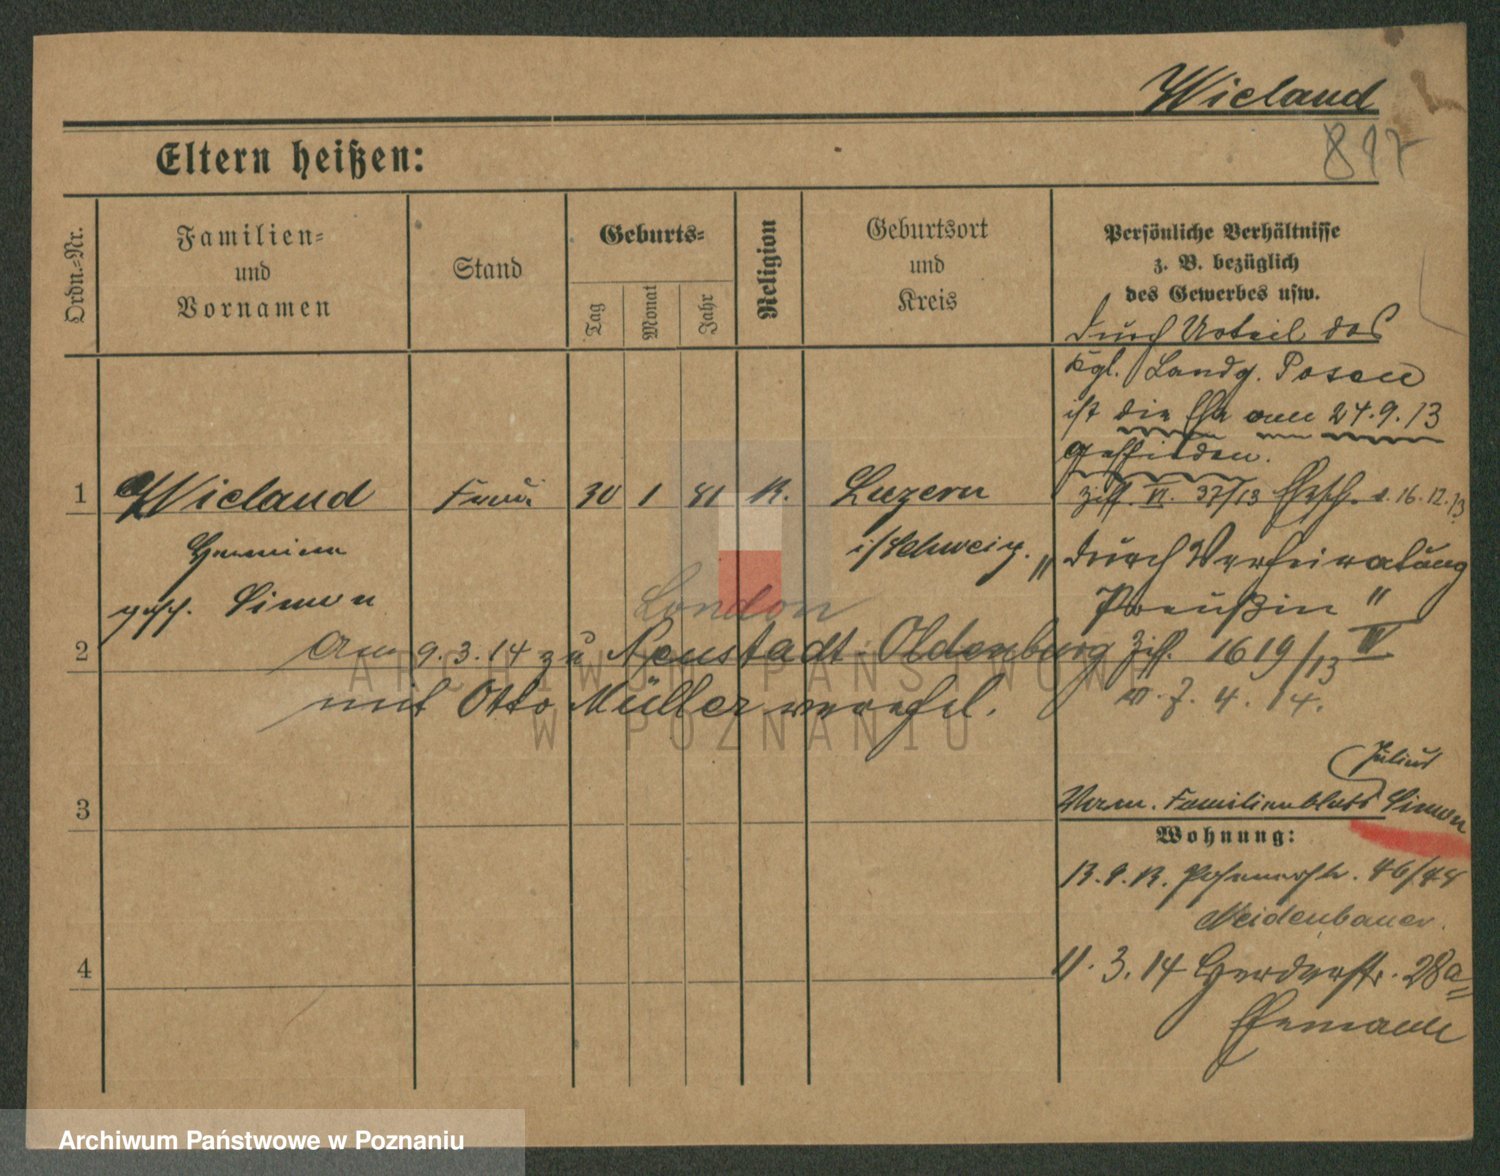 Wieland
897
Eltern heißen:
Ordn.-Nr.
Familien-
und
Vornamen
Stand
Geburts-
Tag
Monat
Jahr
Religion
Geburtsort
und
Kreis
Persönliche Verhältnisse
z. B. bezüglich
des Gewerbes usw.
durch Urteil des
Kgl. Landg. Posen
ist die Ehe am 24.9.13
geschieden.
Ziff. VI. 37/13 d. 16.12.13
1 Wieland Frau 30 1 81 K. Luzern
i/Schweiz.
Hermine
gesch. Simon
"durch Verheiratung
Preußin"
London
2 Am 9.3.14 zu Neustadt-Oldenburg
Ziff. 1619/13 IV
mit Otto Müller verehel.
v. 7. 4. 14.
3
Julius
Verm. Familienblatt Simon
Wohnung:
13.9.13. Posenerstr. 46/48
Neidenbauer.
4
11.3.14 Herderstr. 28a
Ehemann
ARCHIWUM PAŃSTWOWE
W POZNANIU
Archiwum Państwowe w Poznaniu